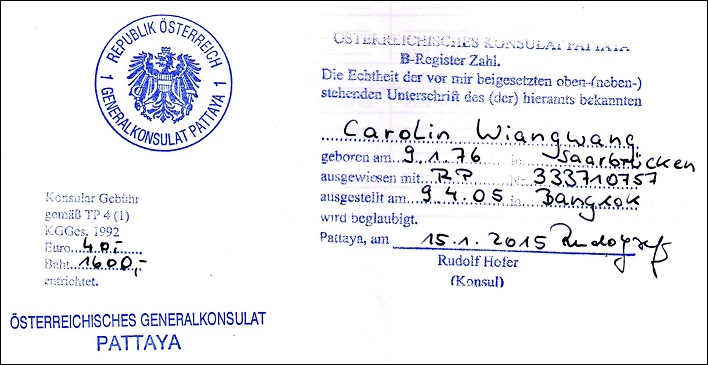 REPUBLIK ÖSTERREICH
1 GENERALKONSULAT PATTAYA 1
Konsular Gebühr
gemäß TP 4 (1)
KGGes. 1992
Euro 40.-
Baht 1600,-
entrichtet.
ÖSTERREICHISCHES GENERALKONSULAT
PATTAYA
ÖSTERREICHISCHES KONSULAT PATTAYA
B-Register Zahl.
Die Echtheit der vor mir beigesetzten oben-(neben-)
stehenden Unterschrift des (der) hieramts bekannten
Carolin Wiangwang
geboren am 9.1.76 in Saarbrücken
ausgewiesen mit RP Nr. 333710757
ausgestellt am 9.4.05 in Bangkok
wird beglaubigt.
Pattaya, am 15.1.2015
Rudolf Hofer
(Konsul)